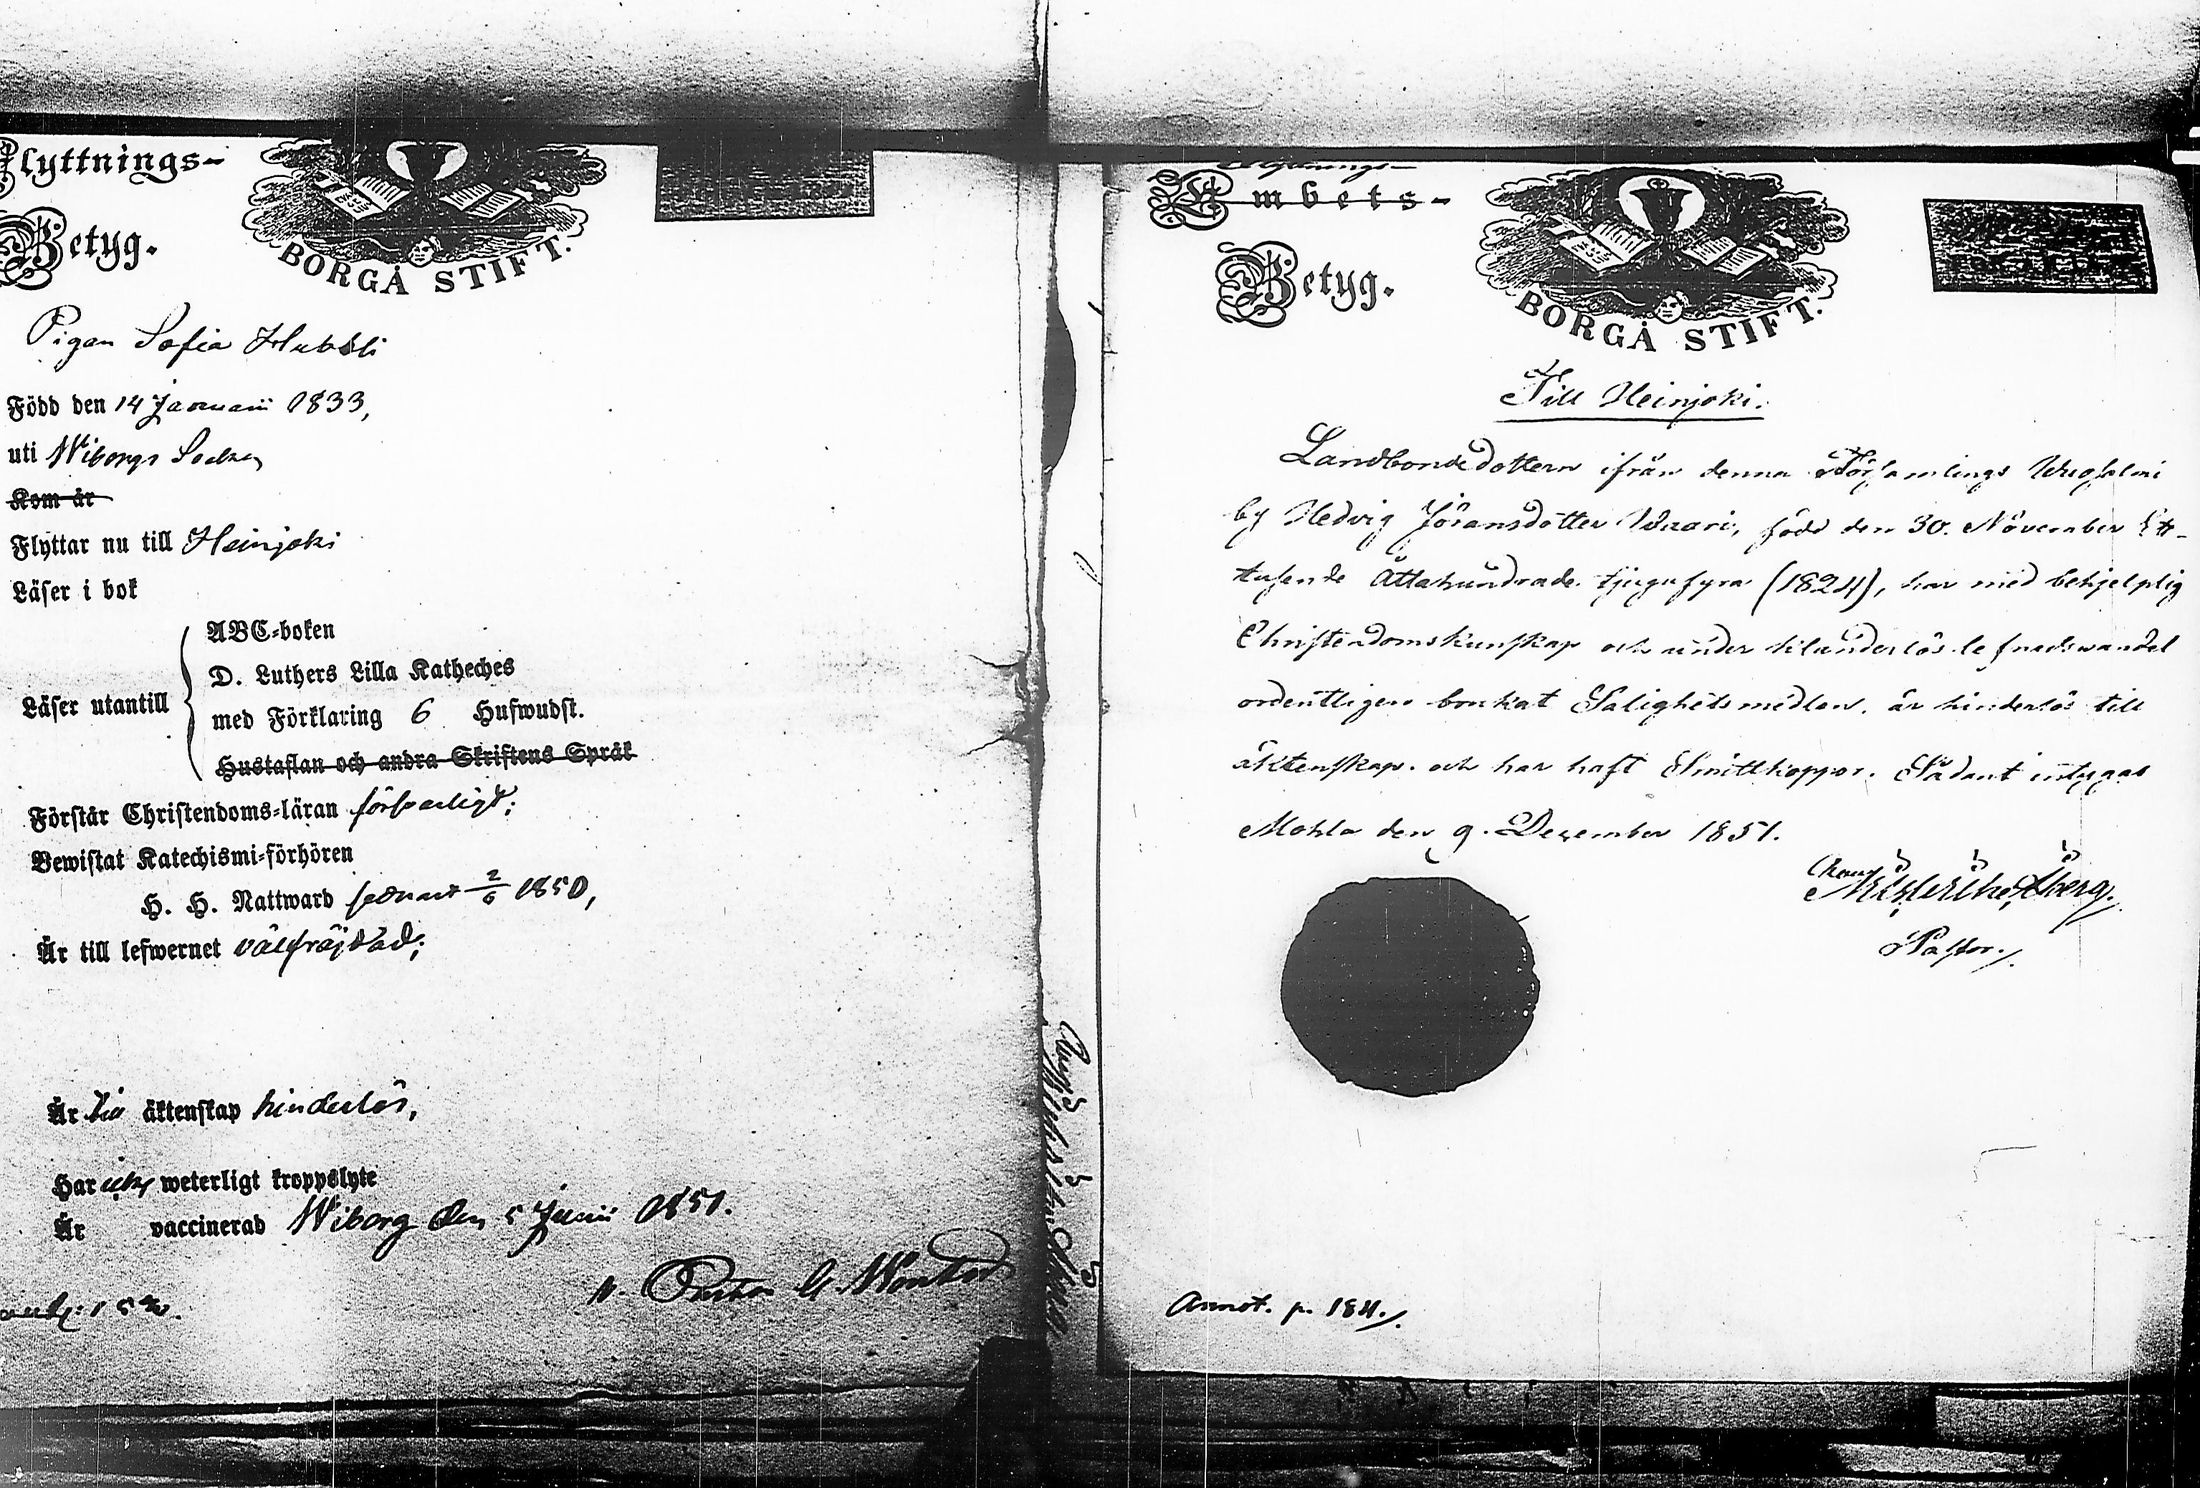 Flyttnings-
Betyg.
BORGÅ STIFT.
Pigan Sofia
Född den 14 Januarii 1833,
uti Wiborgs Socken
Kom är
Flyttar nu till Heinjoki
Läser i bok
ABC-boken
D. Luthers Lilla Katheches
Läser utantill
med Förklaring 6 Hufwudst.
Hustaflan och andra Skriftens Språk
Förstår Christendoms-läran försvarligt;
Bewistat Katechismi-förhören
H. H. Nattward sednast 2/6 1850,
Är till lefwernet välfräjdad;
Är till äktenskap hinderlös,
Har icke weterligt kroppslyte
Är vaccinerad Wiborg den 5 Junii 1851.
Flyttnings-
Ambets-
Betyg.
BORGÅ STIFT.
Till Heinjoki.
Landbondedottern ifrån denna Församlings
by Hedvig Jöransdotter född den 30. November Ett-
tusende Åttahundrade tjugufyra (1824), har med behjelplig
Christendomskunskap och under oklanderlös lefnadswandel
ordentligen brukat Salighetsmedlen, är hinderlös till
äktenskap och har haft Smittkoppor. Sådant intygas
Mohla den 9. December 1851.
Pastor.
Annot. p. 184.